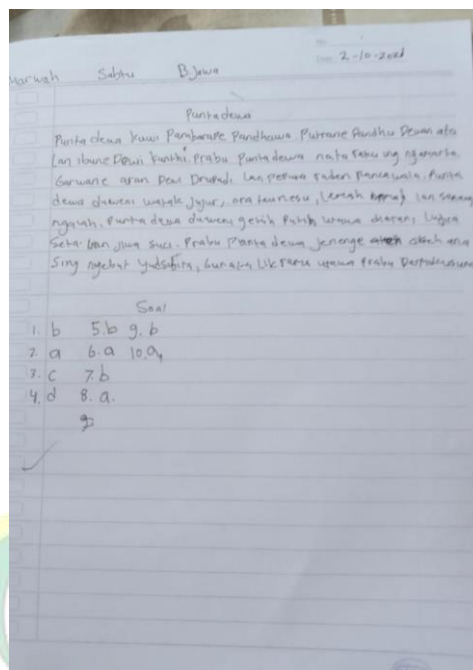 2-10-2021
Marwah Sabtu B.Jawa
Puntadewa
Punta dewa kuwi Pambarape Pandhawa Putrane Pandhu Dewanata
Lan ibune Dewi Kunthi Prabu Puntadewa nata Ratu ing Ngamarta
Garwane aran Dewi Drupadi Lan Putra raden Pancawala. Punta
dewa duweni watak Jujur, ora tau nesu, lan seneng
ngalah. Punta dewa duweni getih Putih
Seta lan jiwa Suci. Prabu Punta dewa Jenenge akeh ana
Sing nyebut Yudistira, Prabu
Soal
1. b 5. b 9. b
2. a 6. a 10. a
3. c 7. b
4. d 8. a.